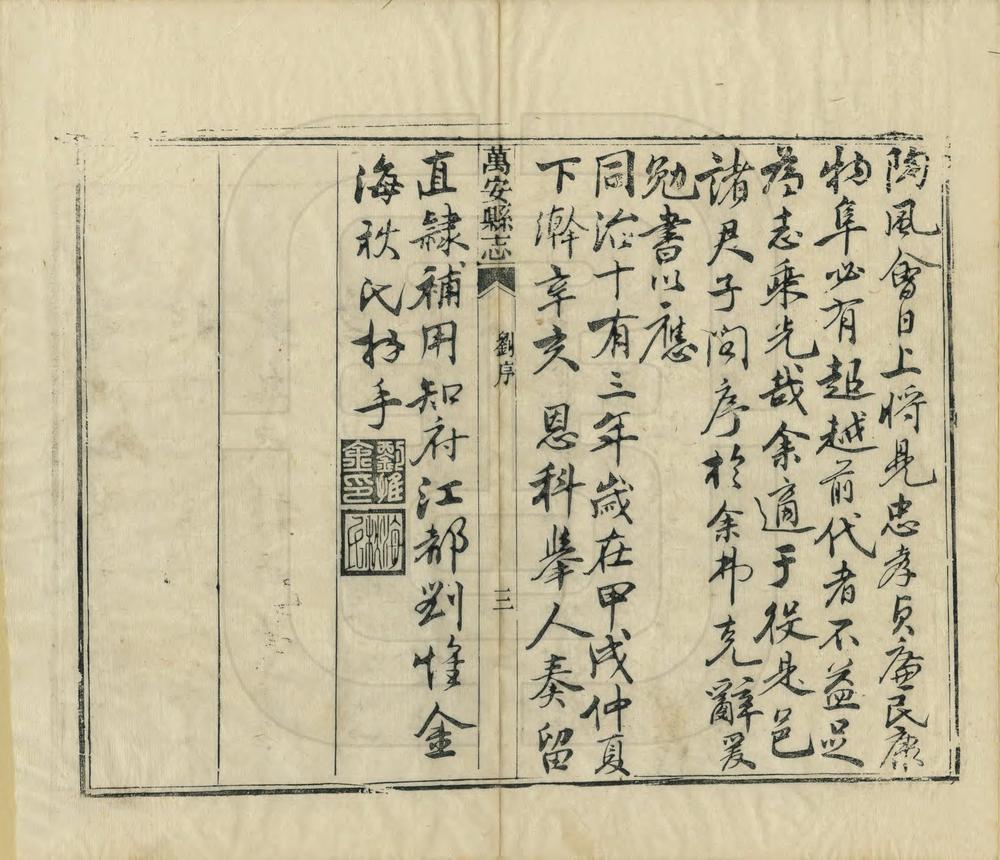 陶風會日上將見忠孝貞廉民康
物阜必有超越前代者不益足
為志乘光哉余適于役是邑
諸君子問序於余弗克辭爰
勉書以應
同治十有三年歲在甲戌仲夏
下澣辛亥 恩科舉人奏留
萬安縣志 劉序 三
直隸補用知府江都劉惟金
海秋氏拜手
劉惟金印
海秋氏